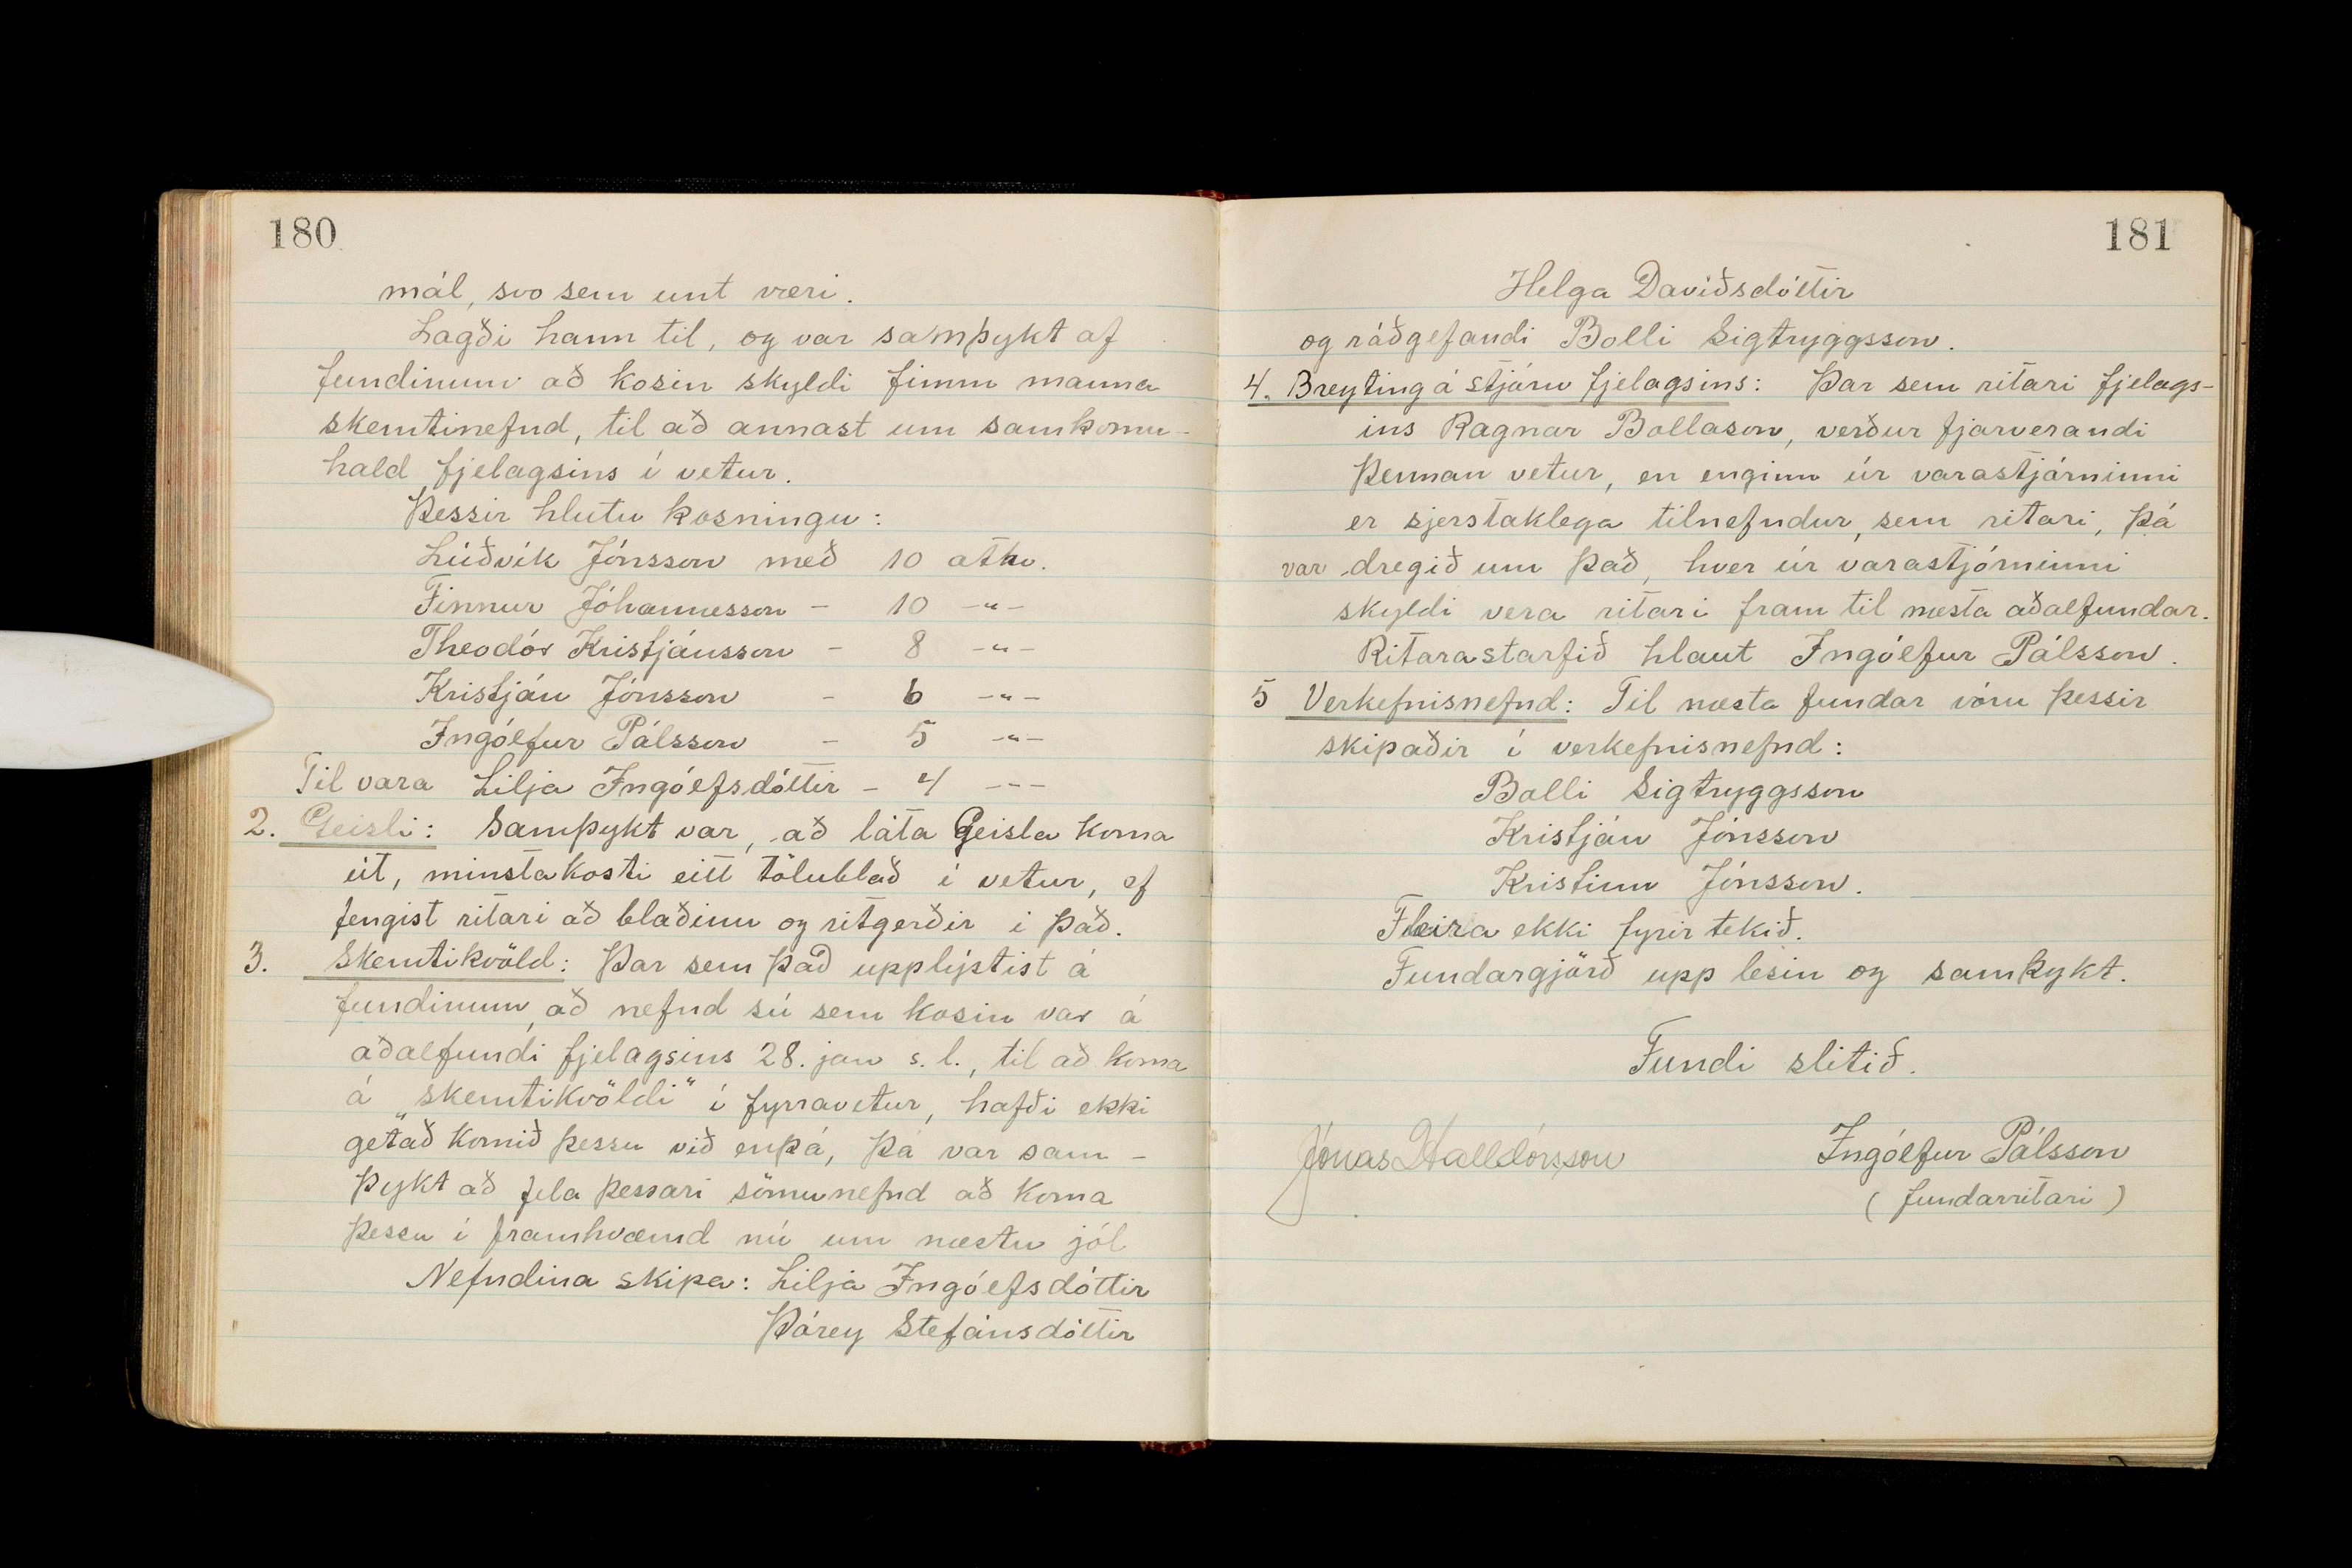 180
mál, svo sem unt væri.
Lagði hann til, og var samþykt af
fundinum að kosin skyldi fimm manna
skemtinefnd, til að annast um samkomu-
hald fjelagsins í vetur.
Þessir hlutu kosningu:
Lúðvík Jónsson með 10 atkv.
Finnur Jóhannesson - 10 -"-
Theodór Kristjánsson - 8 -"-
Kristján Jónsson - 6 -"-
Ingólfur Pálsson - 5 -"-
Til vara Lilja Ingólfsdóttir - 4 ---
2. Geisli: Samþykt var, að láta Geisla koma
út, minstakosti eitt tölublað í vetur, ef
fengist ritari að blaðinu og ritgerðir í það.
3. Skemtikvöld: Þar sem það upplýstist á
fundinum, að nefnd sú sem kosin var á
aðalfundi fjelagsins 28. jan s.l., til að koma
á „skemtikvöldi" í fyrravetur, hafði ekki
getað komið þessu við enþá, þá var sam-
þykt að fela þessari sömu nefnd að koma
þessu í framhvæmd nú um næstu jól
Nefndina skipa: Lilja Ingólfsdóttir
Þórey Stefánsdóttir
181
Helga Davíðsdóttir
og ráðgefandi Bolli Sigtryggsson.
4. Breyting á stjórn fjelagsins: Þar sem ritari fjelags-
ins Ragnar Bollason, verður fjarverandi
þennan vetur, en enginn úr varastjórninni
er sjerstaklega tilnefndur, sem ritari, þá
var dregið um það, hver úr varastjórninni
skyldi vera ritari fram til næsta aðalfundar.
Ritarastarfið hlaut Ingólfur Pálsson.
5 Verkefnisnefnd: Til næsta fundar vóru þessir
skipaðir í verkefnisnefnd:
Bolli Sigtryggsson
Kristján Jónsson
Kristinn Jónsson.
Fleira ekki fyrir tekið.
Fundargjörð upp lesin og samþykt.
Fundi slitið.
Jónas Halldórsson
Ingólfur Pálsson
(fundarritari)